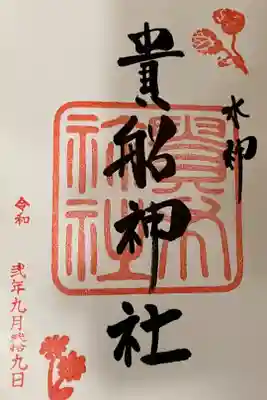 水神
貴船神社
貴船神社
令和
弐年九月弐拾九日